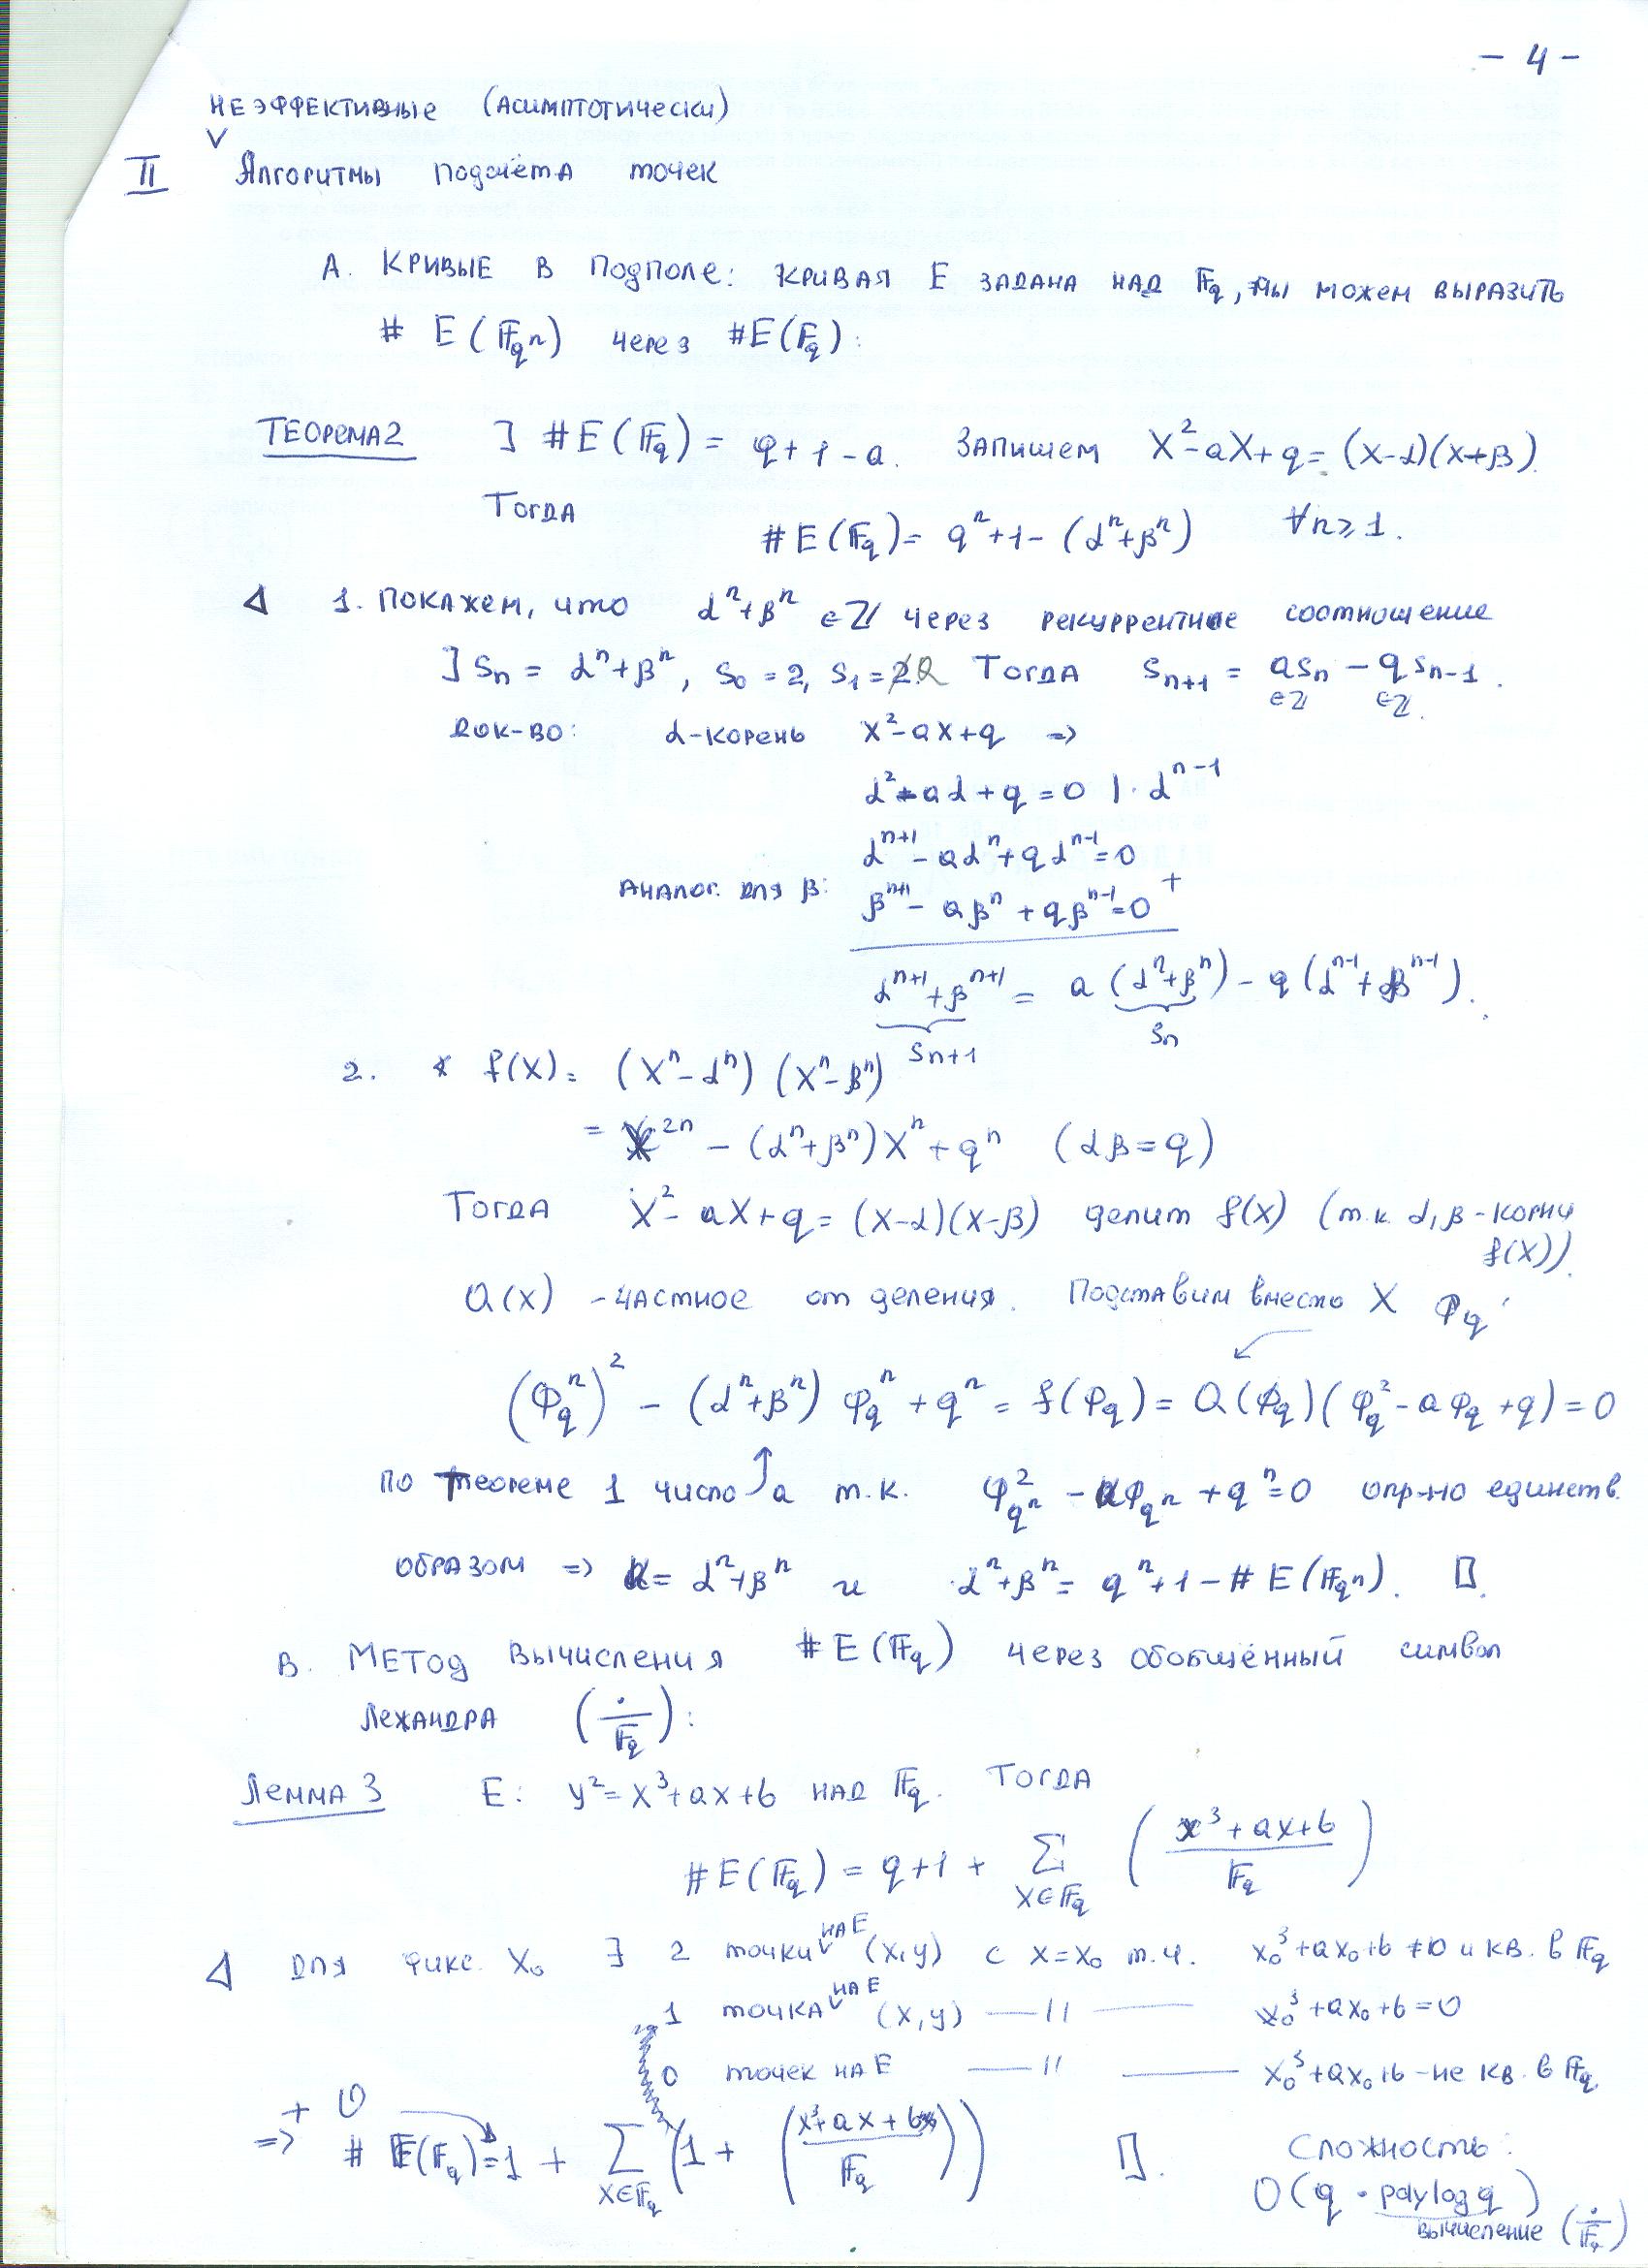 - 4 -
НЕЭФФЕКТИВНЫЕ (АСИМПТОТИЧЕСКИ)
II Алгоритмы подсчёта точек
А. Кривые в подполе: кривая E задана над 𝔽_q, мы можем выразить
# E(𝔽_{q^n}) через #E(F_q):
Теорема 2 ] #E(𝔽_q) = q+1-a. Запишем X^2-aX+q = (x-α)(x+β).
Тогда #E(𝔽_q) = q^n+1-(α^n+β^n) ∀n≥1.
Δ 1. Покажем, что α^n+β^n ∈ ℤ через рекуррентное соотношение
] S_n = α^n+β^n, S_0 = 2, S_1 = a Тогда S_{n+1} = aS_n - qS_{n-1}.
∈ℤ ∈ℤ
Док-во: α-корень X^2-aX+q =>
α^2-aα+q=0 | · α^{n-1}
α^{n+1} - aα^n + qα^{n-1} = 0
Аналог. для β: β^{n+1} - aβ^n + qβ^{n-1} = 0 +
α^{n+1}+β^{n+1} = a(α^n+β^n) - q(α^{n-1}+β^{n-1}).
S_{n+1} S_n
2. f(X) = (X^n-α^n)(X^n-β^n)
= X^{2n} - (α^n+β^n)X^n + q^n (αβ=q)
Тогда X^2-aX+q = (X-α)(X-β) делит f(X) (т.к. α,β-корни
f(X)).
Q(X) - частное от деления. Подставим вместо X φ_q:
(φ_q^n)^2 - (α^n+β^n) φ_q^n + q^n = f(φ_q) = Q(φ_q)(φ_q^2 - aφ_q + q) = 0
По теореме 1 число a т.к. φ_{q^n}^2 - aφ_{q^n} + q^n = 0 опр-но единств.
образом => a = α^n+β^n и α^n+β^n = q^n+1-#E(𝔽_{q^n}). ▯.
В. Метод вычисления #E(𝔽_q) через обобщённый символ
Лежандра (·/𝔽_q):
Лемма 3 E: y^2=x^3+ax+b над 𝔽_q. Тогда
#E(𝔽_q) = q+1 + ∑_{X∈𝔽_q} ((x^3+ax+b)/𝔽_q)
Δ Для фикс. X_0 ∃ 2 точки на E (x,y) с x=x_0 т.ч. x_0^3+ax_0+b ≠0 и кв. в 𝔽_q
1 точка на E (x,y) —||— x_0^3+ax_0+b=0
0 точек на E —||— x_0^3+ax_0+b - не кв. в 𝔽_q
+ O
=> # E(𝔽_q) = 1 + ∑_{X∈𝔽_q} (1 + ((x^3+ax+b)/𝔽_q)) ▯.
Сложность:
O(q · polylog q)
вычисление (·/𝔽_q)